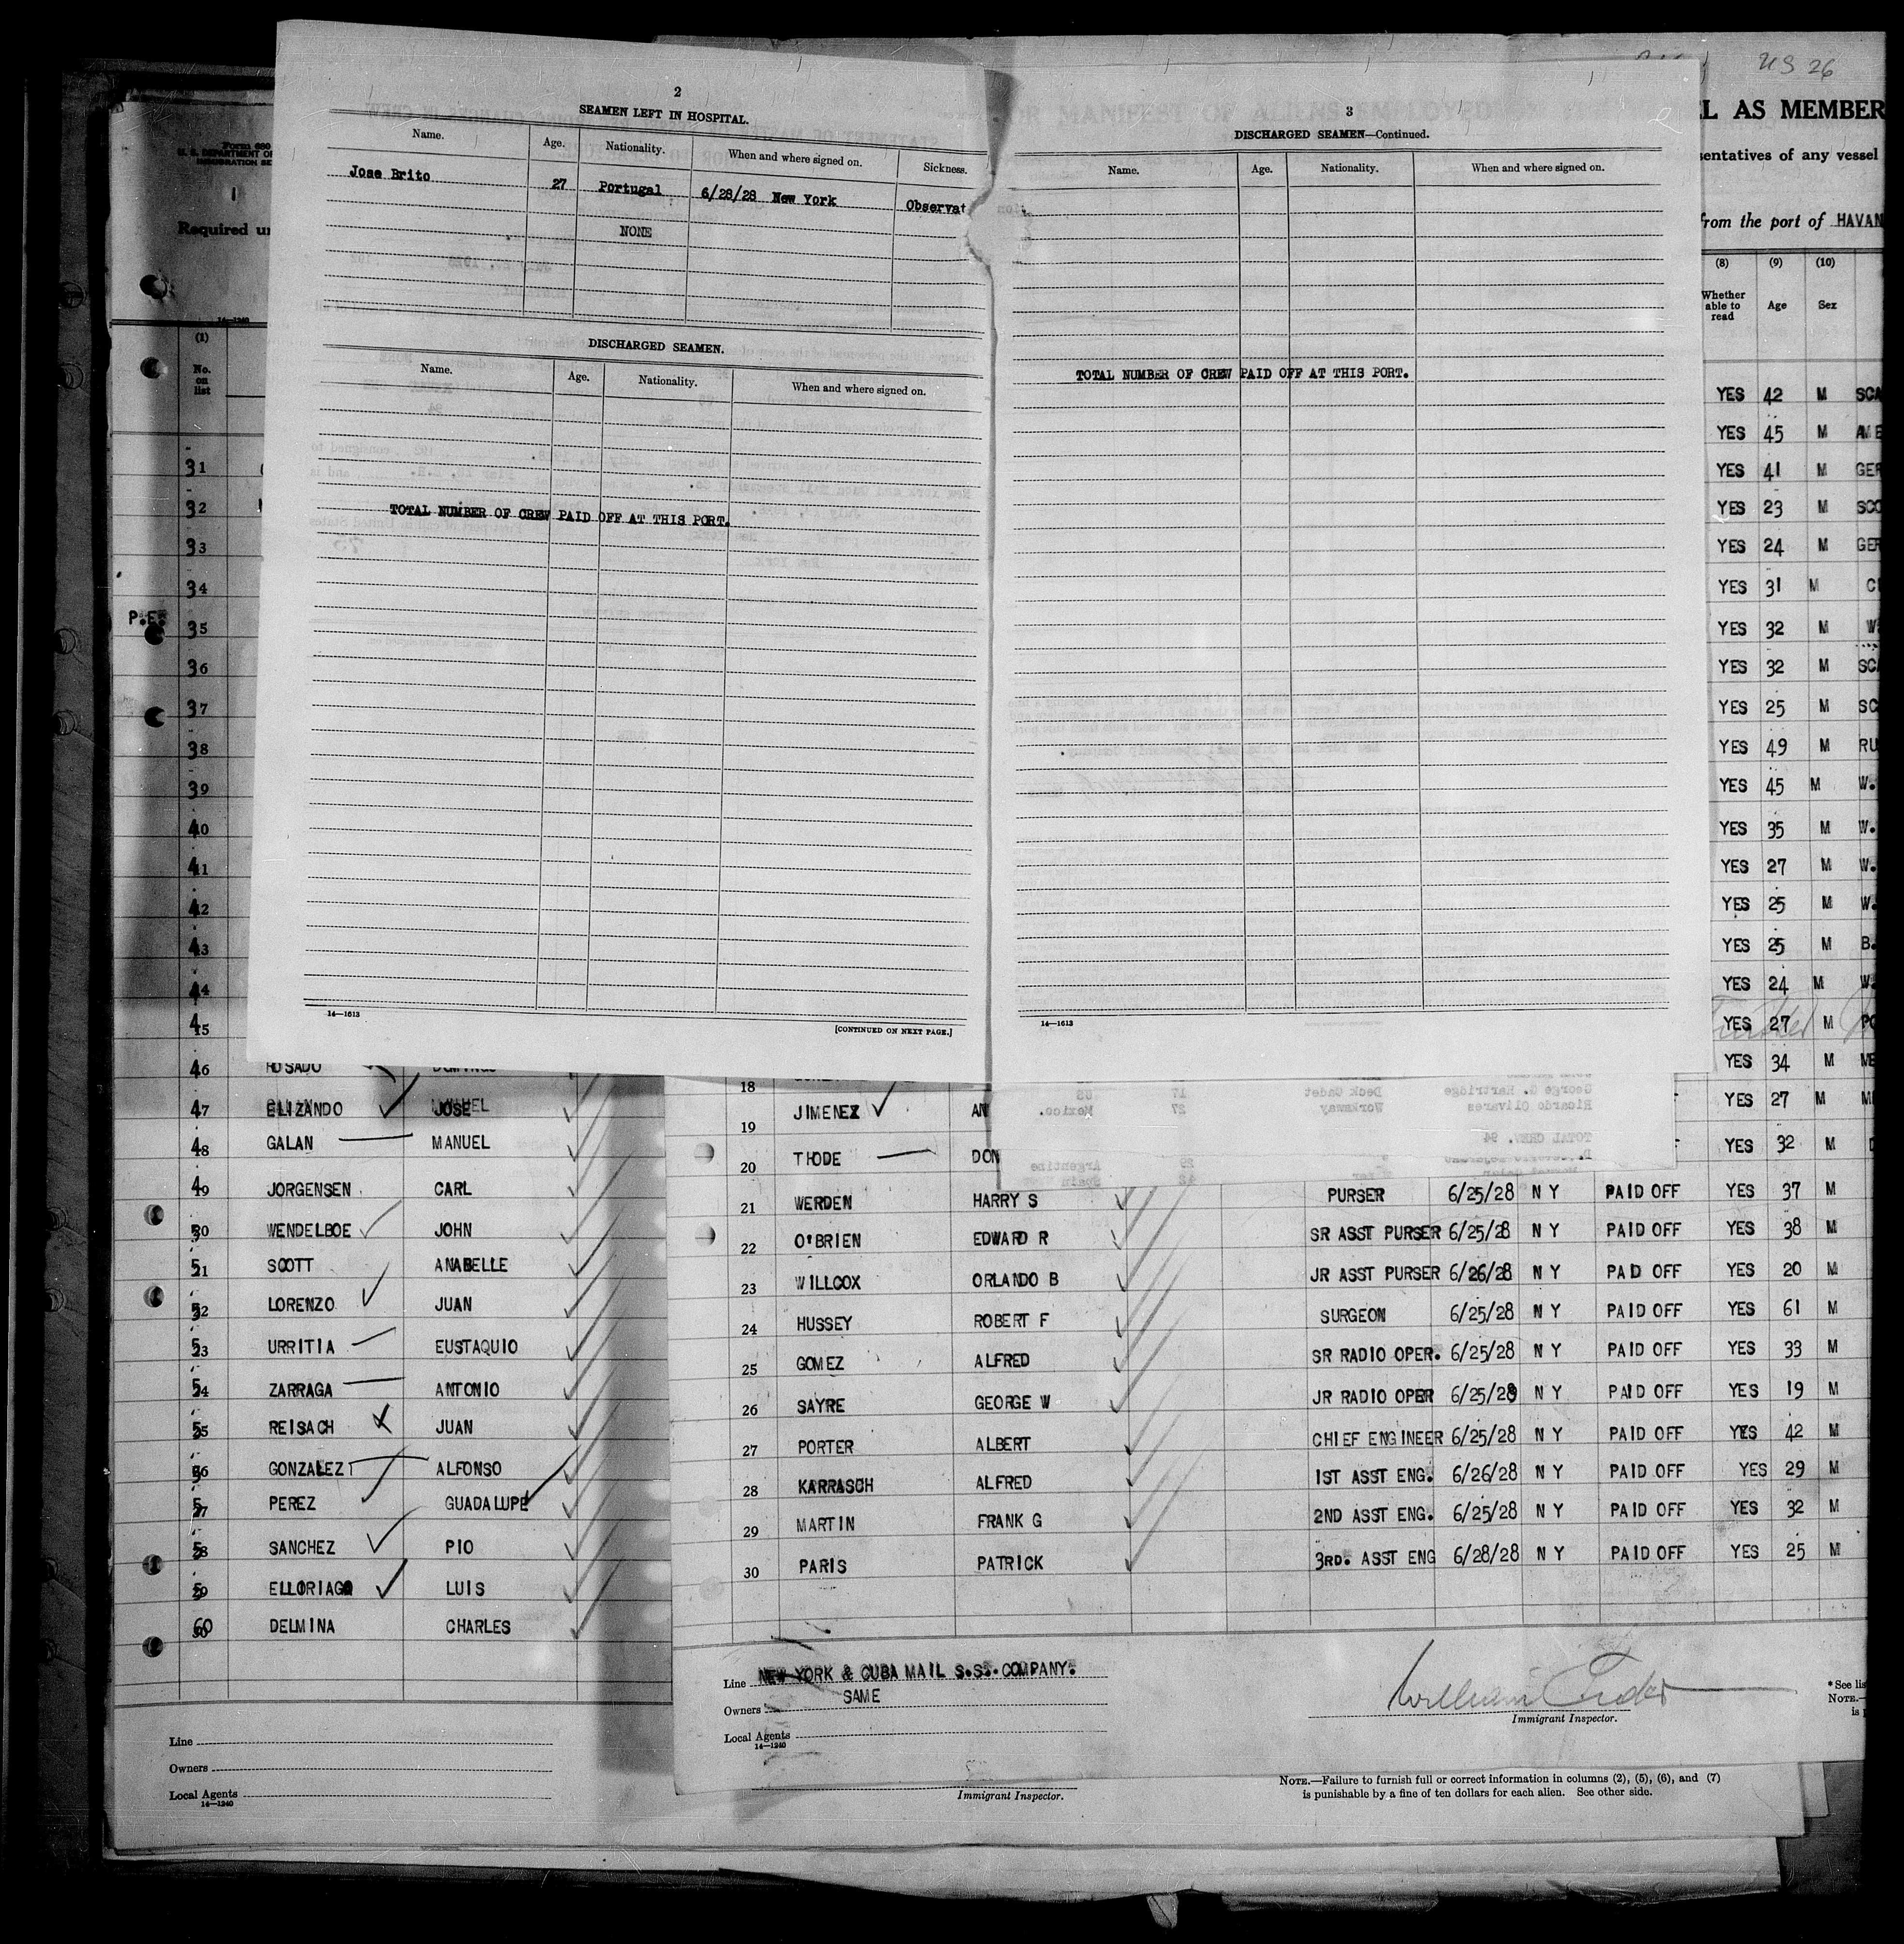 US 26
2
SEAMEN LEFT IN HOSPITAL.
Name. Age. Nationality. When and where signed on. Sickness.
Jose Brito 27 Portugal 6/28/28 New York Observat
NONE
DISCHARGED SEAMEN.
Name. Age. Nationality. When and where signed on.
TOTAL NUMBER OF CREW PAID OFF AT THIS PORT.
14—1613
[CONTINUED ON NEXT PAGE.]
3
DISCHARGED SEAMEN—Continued.
Name. Age. Nationality. When and where signed on.
TOTAL NUMBER OF CREW PAID OFF AT THIS PORT.
14—1613
L AS MEMBER
sentatives of any vessel
from the port of HAVAN
(8) (9) (10)
Whether able to read Age Sex
YES 42 M SCA
YES 45 M AME
YES 41 M GER
YES 23 M SCO
YES 24 M GER
YES 31 M
YES 32 M W.
YES 32 M SCA
YES 25 M SC
YES 49 M RU
YES 45 M W.
YES 35 M W.
YES 27 M W.
YES 25 M W.
YES 25 M B.
YES 24 M W.
YES 27 M PO
YES 34 M ME
YES 27 M M
YES 32 M
Form 680
U. S. DEPARTMENT OF
IMMIGRATION SE
Required un
14—1240
(1)
No. on list
31
32
33
34
P.E. 35
36
37
38
39
40
41
42
43
44
45
46 ROSADO DOMINGO
47 ELIZANDO JOSE
48 GALAN MANUEL
49 JORGENSEN CARL
50 WENDELBOE JOHN
51 SCOTT ANABELLE
52 LORENZO JUAN
53 URRITIA EUSTAQUIO
54 ZARRAGA ANTONIO
55 REISACH JUAN
56 GONZALEZ ALFONSO
57 PEREZ GUADALUPE
58 SANCHEZ PIO
59 ELLORIAGO LUIS
60 DELMINA CHARLES
Line
Owners
Local Agents
14—1240
18
19 JIMENEZ AN
20 THODE DON
21 WERDEN HARRY S PURSER 6/25/28 N Y PAID OFF YES 37 M
22 O'BRIEN EDWARD R SR ASST PURSER 6/25/28 N Y PAID OFF YES 38 M
23 WILLCOX ORLANDO B JR ASST PURSER 6/26/28 N Y PAID OFF YES 20 M
24 HUSSEY ROBERT F SURGEON 6/25/28 N Y PAID OFF YES 61 M
25 GOMEZ ALFRED SR RADIO OPER. 6/25/28 N Y PAID OFF YES 33 M
26 SAYRE GEORGE W JR RADIO OPER 6/25/28 N Y PAID OFF YES 19 M
27 PORTER ALBERT CHIEF ENGINEER 6/25/28 N Y PAID OFF YES 42 M
28 KARRASCH ALFRED 1ST ASST ENG. 6/26/28 N Y PAID OFF YES 29 M
29 MARTIN FRANK G 2ND ASST ENG. 6/25/28 N Y PAID OFF YES 32 M
30 PARIS PATRICK 3RD. ASST ENG 6/28/28 N Y PAID OFF YES 25 M
Line NEW YORK & CUBA MAIL S.S. COMPANY.
Owners SAME
Local Agents
14—1240
Immigrant Inspector.
* See lis
NOTE.—
is p
Immigrant Inspector.
NOTE.—Failure to furnish full or correct information in columns (2), (5), (6), and (7)
is punishable by a fine of ten dollars for each alien. See other side.